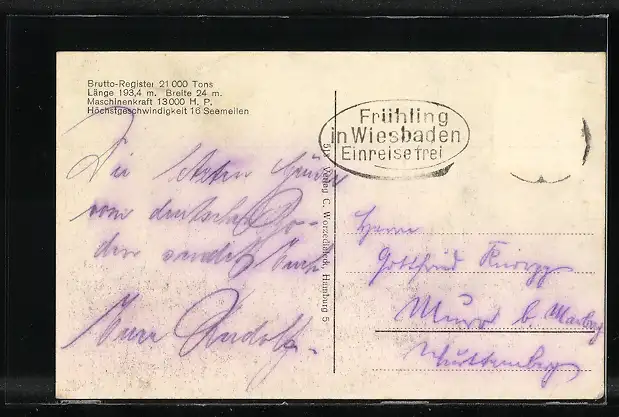 Brutto-Register 21 000 Tons
Länge 193,4 m. Breite 24 m.
Maschinenkraft 13000 H. P.
Höchstgeschwindigkeit 16 Seemeilen
Frühling
in Wiesbaden
Einreise frei
Die letzten Grüße
vom deutschen Bo-
den sendet Euch
Euer Rudolf.
Verlag C. Worzedialeck, Hamburg 5
Herrn
Gottfried
b. Marbg
Württemberg